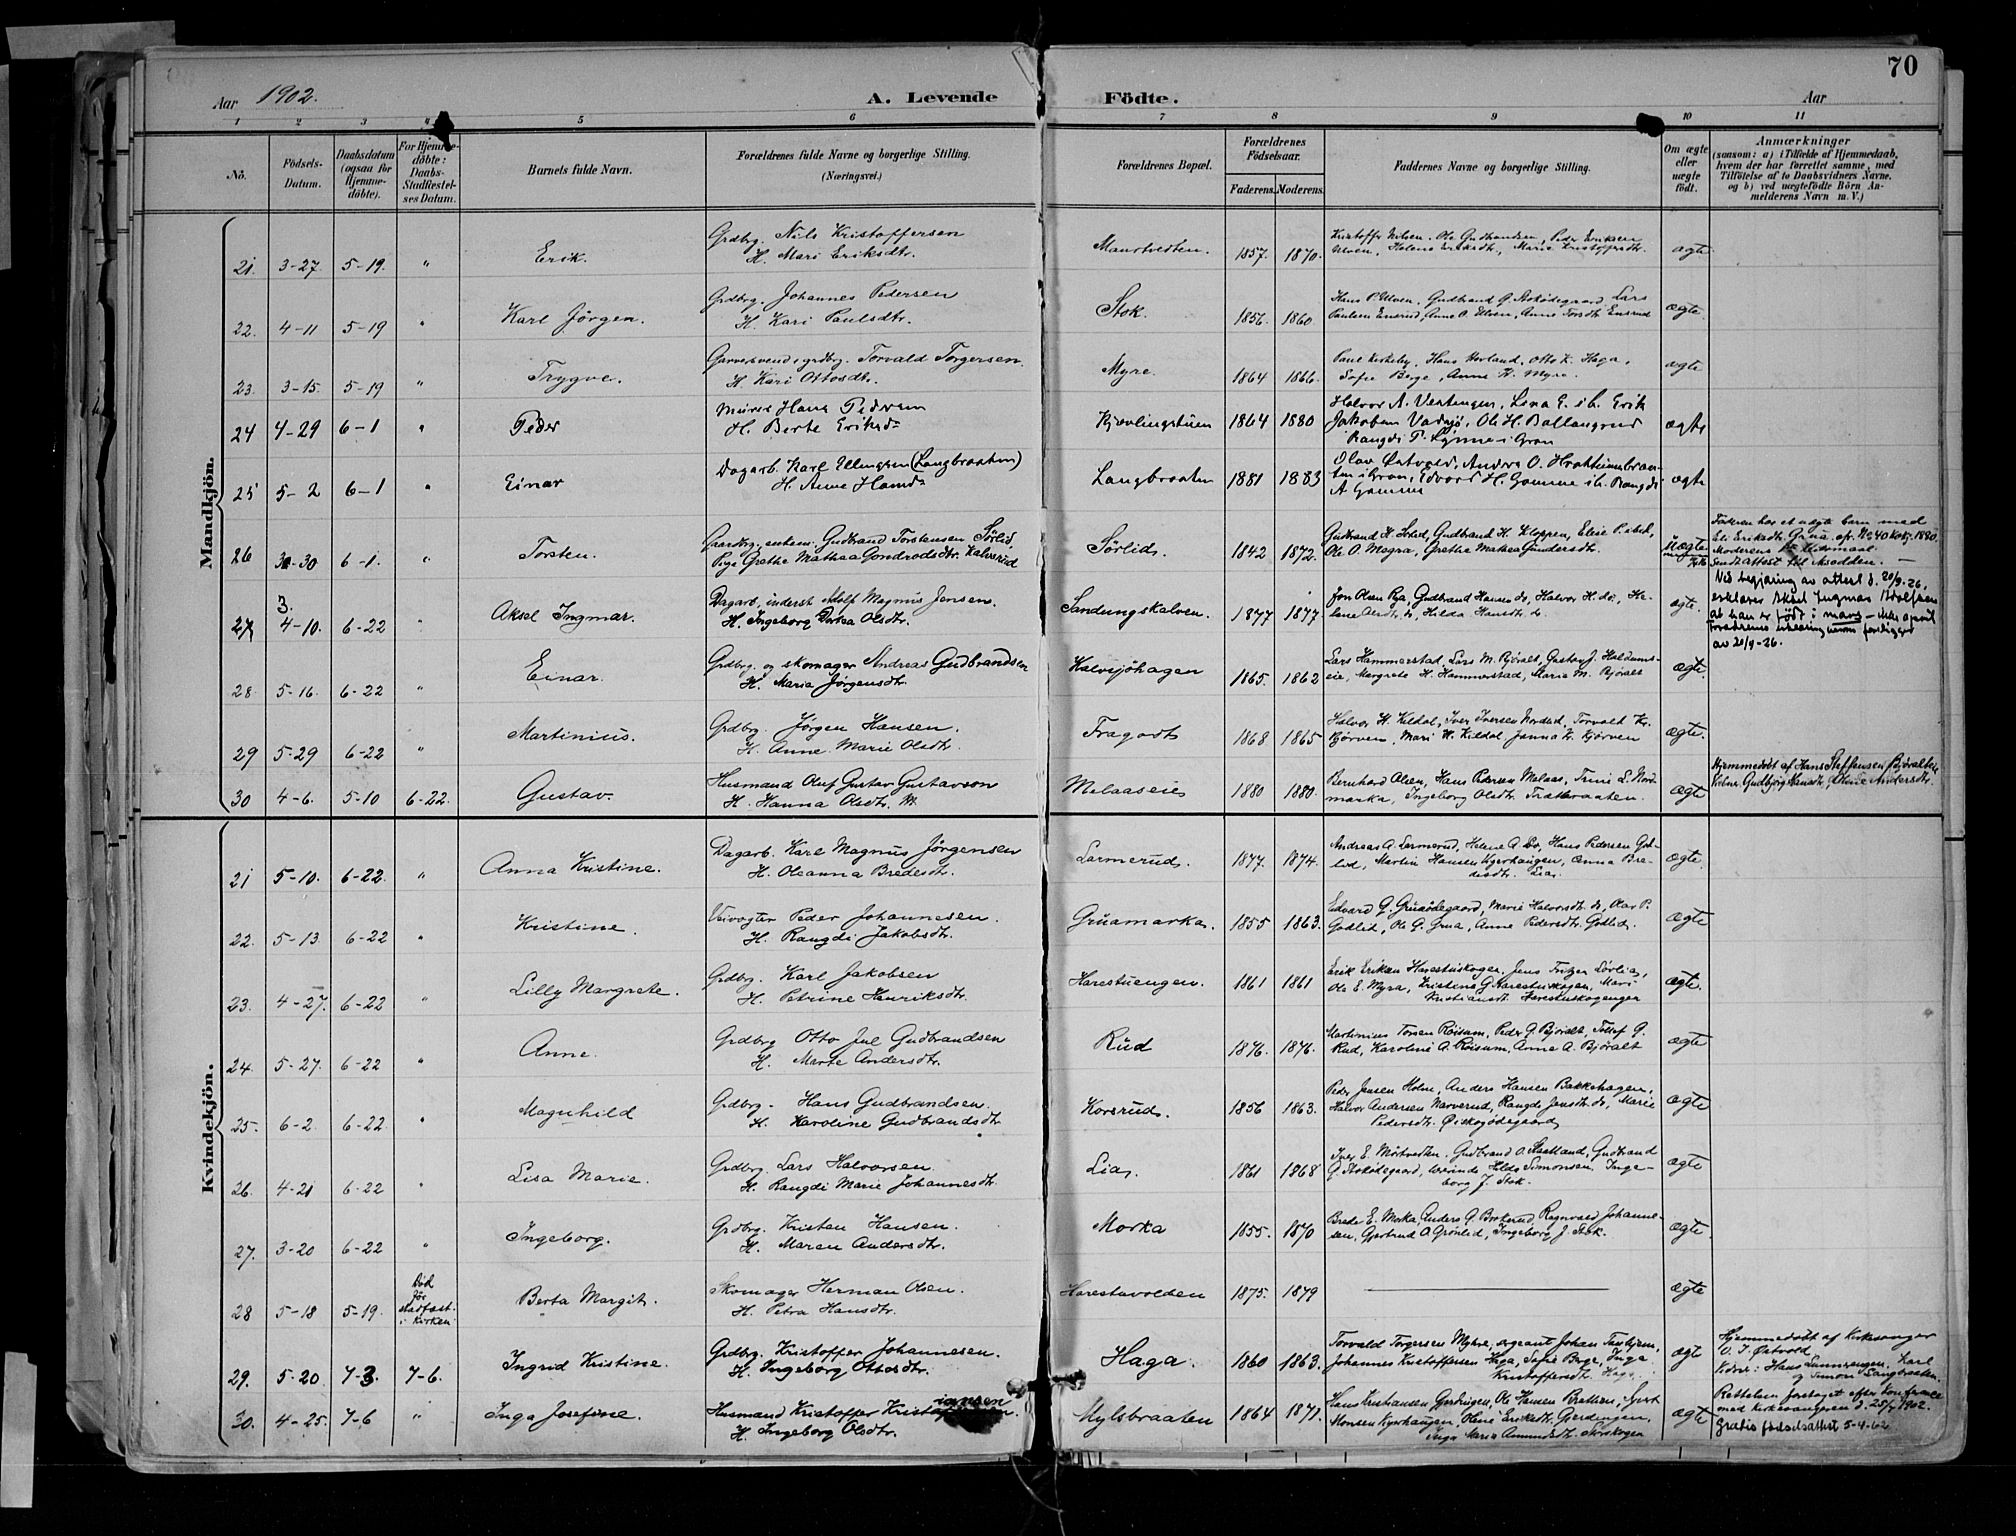 70
Aar 1902. A. Levende Födte. Aar
1 2 3 4 5 6 7 8 9 10 11
No.
Födsels-Datum.
Daabsdatum (ogsaa for Hjemme-döbte).
For Hjemme-döbte: Daabs-Stadfæstel-ses Datum.
Barnets fulde Navn.
Forældrenes fulde Navne og borgerlige Stilling. (Næringsvei.)
Forældrenes Bopæl.
Forældrenes Födselsaar.
Faderens. Moderens.
Faddernes Navne og borgerlige Stilling.
Om ægte eller uægte födt.
Anmærkninger
(saasom: a) i Tilfælde af Hjemmedaab, hvem der har forrettet samme, med Tilföielse af to Daabsvidners Navne, og b) ved uægtefödte Börn An-melderens Navn m. V.)
Mandkjön.
21. 3-27 5-19. " Erik. Grdbrg. Nils Kristoffersen
H. Mari Eriksdtr. 1857. 1870. ægte
22. 4-11 5-19 " Karl Jörgen. Grdbrg. Johannes Pedersen
H. Kari Paulsdtr. Stok. 1856. 1860 Hans P. Ulven, Gudbrand G. Stoködegaard, Lars
Paulsen Ensrud, Anne O. Ulven, Anne Torsdtr. Ensrud ægte
23. 3-15. 5-19 " Trygve. Garversvend, grdbrg. Torvald Torgersen
H. Kari Ottosdtr. Myre. 1864 1866. Paul Kirkeby, Hans Hovland, Otto K. Haga,
Sofie Berge, Anne K. Myre. ægte
24 4-29 6-1 " Peder Murer Hans Pedersen
H. Berte Eriksd. Kjævlingstuen 1864 1880 Halvor A. Vestengen, Lina E. ib. Erik
Jakobsen Vadsjö, Ole H. Ballangrud
Rangdi P. Lynne i Gran ægte
25 5-2 6-1 " Einar Dagarb. Karl Ellingsen (Langbraaten)
H. Anne Hansd. Langbraaten 1881 1883 Olav Östvold, Anders O.
i Gran, Edvard H. Gamme ib. Rangdi
A Gamme ægte
26 3-30 6-1. " Torsten. Gaardbrg. enkem. Gudbrand Torstensen Sörlid,
Pige Grethe Mathea Gundersdtr. Kalverud Sörlid. 1842 1872. Gudbrand H. Sörlid, Gudbrand H. Kloppen, Elise P. ibid,
Ole O. Magra, Grethe Mathea Gundersdtr. Uægte Faderen har et uægte barn med
Eli Eriksdtr. Grua
Moderens
Sendt attest til Aredden.
27 3. 4-10. 6-22 " Aksel Ingmar. Dagarb. inderst Adolf Magnus Jensen.
H. Ingeborg Dortea Olsdtr. Sandungskalven. 1877 1877. Jon Olsen Rya, Gudbrand Hansen do, Halvor H. do, He-
lene do, Hilda Hansdtr. do. ægte. Ved begjæring av attest d. 20/9-26,
erklærer Aksel Ingmar Adolfsen
at han er född i mars
av 20/9-26.
28 5-16. 6-22 " Einar. Grdbrg. og skomager Andreas Gudbrandsen
H. Maria Jörgensdtr. Halvsjöhagen 1865. 1862 Lars Hammerstad, Lars M. Björalt, Gustav J. Haldums-
eie, Margrete H. Hammerstad, Marie M. Björalt ægte.
29 5-29 6-22 " Martinius. Grdbrg. Jörgen Hansen.
H. Anne Marie Olsdtr. Fragodt 1868 1865 Halvor H. Kildal, Iver Iversen Nordlid, Torvald Kr.
Björven, Mari H. Kildal, Janna Kr. Björven ægte.
30 4-6. 5-10 6-22. Gustav. Husmand Oluf Gustav Gustavson
H. Hanna Olsdtr. Melaaseie 1880 1880. Bernhard Olsen, Hans Petersen Melaas, Trine L. Nord-
marka, Ingeborg Olsdtr. Trætbraaten. ægte Hjemmedöbt af Hans Steffensen Björalteie
Vidner Gudbjörg Hansdtr., Oline Andersdtr.
Kvindekjön.
21 5-10. 6-22. " Anna Kristine. Dagarb. Karl Magnus Jörgensen
H. Oleanna Bredesdtr. Larmerud. 1877. 1874. Andreas A. Larmerud, Helene A. do, Hans Pedersen God-
lid, Martin Hansen Kjerhaugen, Anna Bre-
desdtr. Lia. ægte.
22. 5-13. 6-22 " Kristine. Veivogter Peder Johannesen.
H. Rangdi Jakobsdtr. Gruamarka. 1855 1863. Edvard G. Gruaödegaard, Marie Halvorsdtr. do, Olav P.
Godlid, Ole G. Grua, Anne Pedersdtr. Godlid. ægte
23. 4-27. 6-22 " Lilly Margrete. Grdbrg. Karl Jakobsen
H. Petrine Henriksdtr. Harestuengen. 1861 1861 Erik Eriksen Harestuskogen, Jens Sörlia,
Ole E. Myra, Kristine G. Harestuskogen, Mari
Kristiansdtr. Harestuskogengen ægte.
24. 5-27. 6-22 " Anne. Grdbrg. Otto Jul Gudbrandsen
H. Marte Andersdtr. Rud 1876. 1876. Martinius Torsen Röisum, Peder G. Björalt, Tollef G.
Rud, Karoline A. Röisum, Anne A. Björalt ægte
25. 6-2. 6-22 " Magnhild Grdbrg. Hans Gudbrandsen.
H. Karoline Gudbrandsdtr. Korsrud. 1856 1863. Peder Jensen Holm, Anders Hansen Bakkehagen,
Halvor Andersen Narverud, Rangdi Jensdtr. do, Marie
Pedersdtr. Öiskogödegaard. ægte
26. 4-21 6-22 " Lisa Marie. Grdbrg. Lars Halvorsen
H. Rangdi Marie Johannesdtr. Lia. 1861 1868 Iver E. Mörtvedten, Gudbrand O. Staalland, Gudbrand
G. Stoködegaard, Hilda Simonsen, Inge-
borg J. Stok. ægte
27. 3-20 6-22 " Ingeborg. Grdbrg. Kristen Hansen.
H. Maren Andersdtr. Morka 1855. 1870 Brede E. Morka, Anders G. Braterud, Ragnvald Johanne-
sen, Gjertrud A. Grönlid, Ingeborg J. Stok. ægte.
28 5-18 5-19. Död för stadfæst. i kirken Berta Margit. Skomager Herman Olsen.
H. Petra Hansdtr. Harestuvolden 1875. 1879 ægte
29. 5-20 7-3 7-6. Ingrid Kristine. Grdbrg. Kristoffer Johannesen.
H. Ingeborg Ottosdtr. Haga. 1860 1863. Torvald Torgersen Myhre, sergeant Johan
Johannes Kristoffersen Haga, Sofie Berge, Inga
Kristoffersdtr. Haga. ægte Hjemmedöbt af Kirkesanger
O. J. Östvold
Vidner: Hans Lunnæengen, Karl
og Simon Langbraaten.
30. 4-25. 7-6 " Inga Josefine. Husmand Kristoffer Kristiansen
H. Ingeborg Olsdtr. Mylsbraaten 1864 1871. Hans Kristiansen Gjerdingen, Ole Hansen Bratlien, Gjert
Monsen Kjerhaugen, Oline Eriksdtr. Gjerdingen,
Inga Marie Amundsdtr. Storskogen ægte Rettelsen foretaget efter konferance
med Kirkesangeren d. 25/7 1902.
Gratis födselsattest 5-4-62